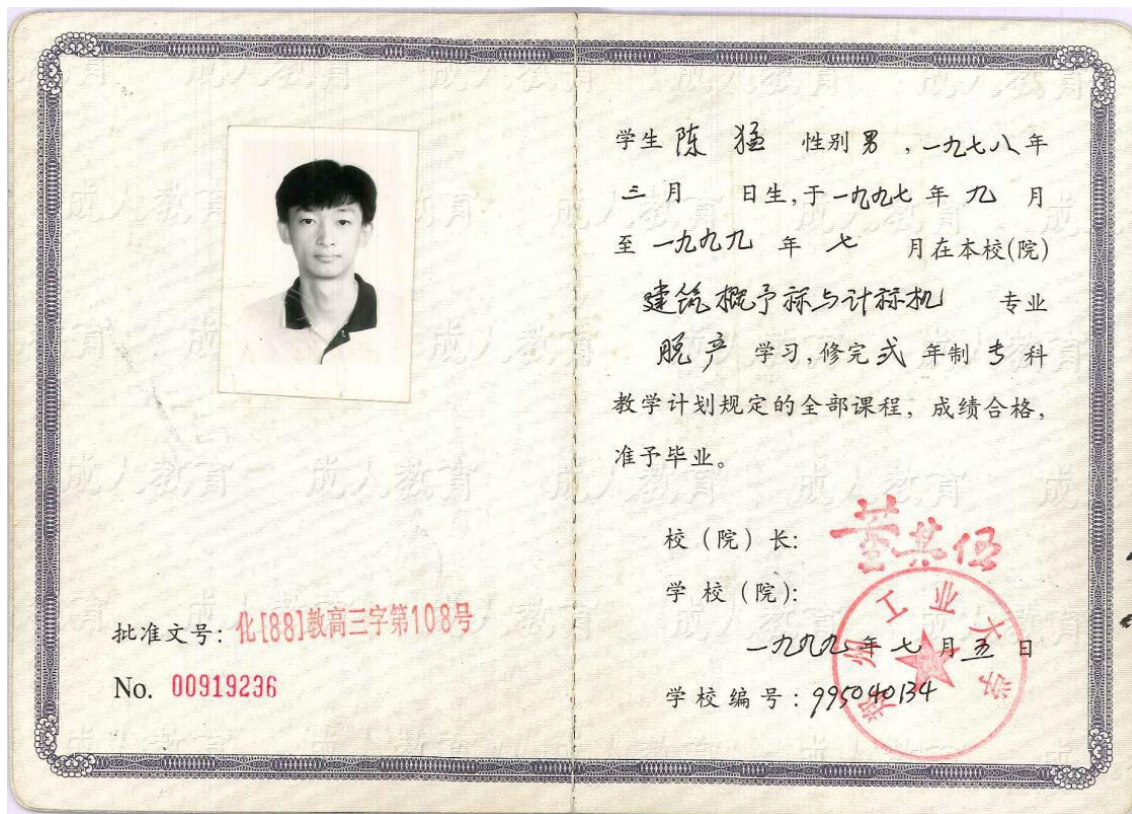 批准文号：化[88]教高三字第108号
No. 00919236
学生 陈 猛 性别 男 ，一九七八年
三 月 日生，于一九九七 年 九 月
至 一九九九 年 七 月在本校(院)
建筑概予标与计标机 专业
脱产 学习，修完 弍 年制 专 科
教学计划规定的全部课程，成绩合格，
准予毕业。
校（院）长：董其伍
学 校（院）：
郑州工业大学
一九九九 年 七 月 五 日
学校编号：995040134
成人教育